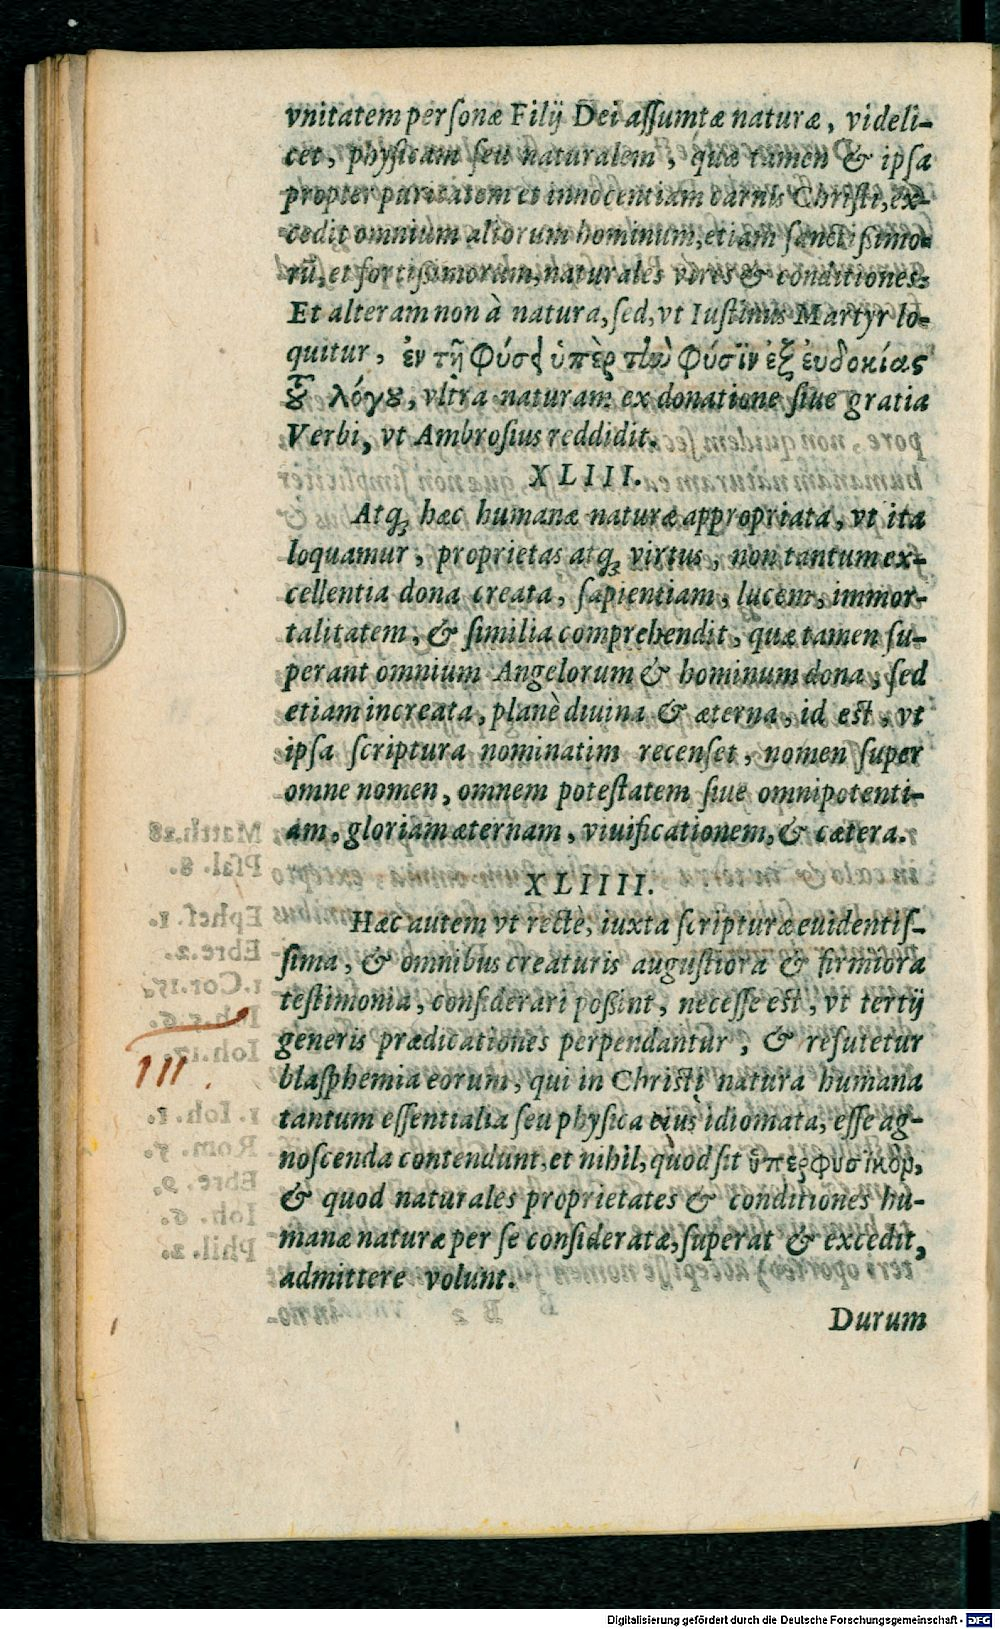 vnitatem personæ Filij Dei assumtæ naturæ, videli-
cet, physicam seu naturalem, quæ tamen & ipsa
propter puritatem et innocentiam carnis Christi, ex-
cedit omnium aliorum hominum, etiam sanctißimo-
rū, et fortißimorum, naturales vires & conditiones:
Et alteram non à natura, sed, vt Iustinus Martyr lo-
quitur, ἐν τῆ φύσὶ ὑπὲρ τὴν φύσϊν ἐξ ἐυδοκίας
τοῦ λόγου, vltra naturam ex donatione siue gratia
Verbi, vt Ambrosius reddidit.
XLIII.
Atq; hæc humanæ naturæ appropriata, vt ita
loquamur, proprietas atq; virtus, non tantum ex-
cellentia dona creata, sapientiam, lucem, immor-
talitatem, & similia comprehendit, quæ tamen su-
perant omnium Angelorum & hominum dona, sed
etiam increata, planè diuina & æterna, id est, vt
ipsa scriptura nominatim recenset, nomen super
omne nomen, omnem potestatem siue omnipotenti-
am, gloriam æternam, viuificationem, & cætera.
XLIIII.
Hæc autem vt rectè, iuxta scripturæ euidentis-
sima, & omnibus creaturis augustiora & firmiora
testimonia, considerari poßint, necesse est, vt tertij
generis prædicationes perpendantur, & refutetur
blasphemia eorum, qui in Christi natura humana
tantum essentialia seu physica eius idiomata, esse ag-
noscenda contendunt, et nihil, quod sit ὑπερφυσικὸν,
& quod naturales proprietates & conditiones hu-
manæ naturæ per se consideratæ, superat & excedit,
admittere volunt.
Durum
III.
Digitalisierung gefördert durch die Deutsche Forschungsgemeinschaft - DFG